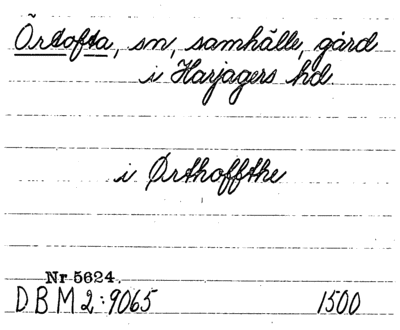 Örtofta, sn, samhälle, gård
i Harjagers hd
i Ørthoffthe
Nr 5624.
DBM 2:9065 1500